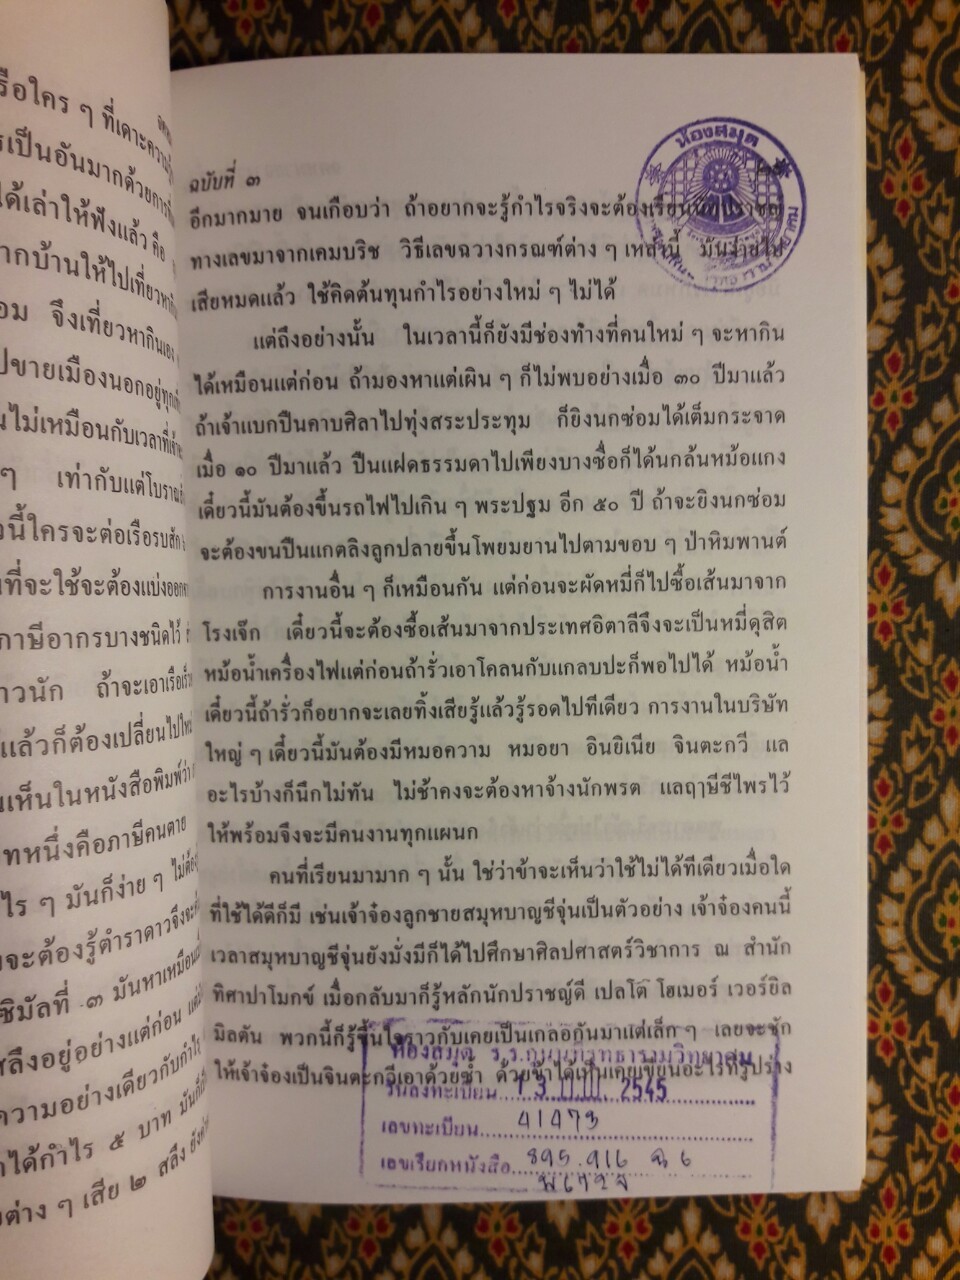 รือใคร ๆ ที่เดาะความ
รเป็นอันมากด้วยการ
ได้เล่าให้ฟังแล้ว คือ
ากบ้านให้ไปเที่ยวหากิน
อม จึงเที่ยวหากินเอง
ปขายเมืองนอกอยู่ทุก
นไม่เหมือนกับเวลาที่เจ้า
ๆ เท่ากับแต่โบราณ
วนี้ใครจะต่อเรือรบสัก
นที่จะใช้จะต้องแบ่งออก
ภาษีอากรบางชนิดไว้
าวนัก ถ้าจะเอาเรือเร็ว
แล้วก็ต้องเปลี่ยนไปใหม่
นเห็นในหนังสือพิมพ์ว่า
ทหนึ่งคือภาษีคนตาย
ไร ๆ มันก็ง่าย ๆ ไม่ต้อง
จะต้องรู้ตำราดาวจึงจะ
ซิมัลที่ ๓ มันหาเหมือน
สลึงอยู่อย่างแต่ก่อน แต่
ความอย่างเดียวกับกำไร
าได้กำไร ๕ บาท มันก็
ต่าง ๆ เสีย ๒ สลึง ยัง
ฉบับที่ ๓
อีกมากมาย จนเกือบว่า ถ้าอยากจะรู้กำไรจริงจะต้องเรียนนักปราชญ์
ทางเลขมาจากเคมบริช วิธีเลขฉวางกรณฑ์ต่าง ๆ เหล่านี้ มันง่ายไป
เสียหมดแล้ว ใช้คิดต้นทุนกำไรอย่างใหม่ ๆ ไม่ได้
แต่ถึงอย่างนั้น ในเวลานี้ก็ยังมีช่องทางที่คนใหม่ ๆ จะหากิน
ได้เหมือนแต่ก่อน ถ้ามองหาแต่เผิน ๆ ก็ไม่พบอย่างเมื่อ ๓๐ ปีมาแล้ว
ถ้าเจ้าแบกปืนคาบศิลาไปทุ่งสระประทุม ก็ยิงนกซ่อมได้เต็มกระจาด
เมื่อ ๑๐ ปีมาแล้ว ปืนแฝดธรรมดาไปเพียงบางซื่อก็ได้นกล้นหม้อแกง
เดี๋ยวนี้มันต้องขึ้นรถไฟไปเกิน ๆ พระปฐม อีก ๕๐ ปี ถ้าจะยิงนกซ่อม
จะต้องขนปืนแกตลิงลูกปลายขึ้นโพยมยานไปตามขอบ ๆ ป่าหิมพานต์
การงานอื่น ๆ ก็เหมือนกัน แต่ก่อนจะผัดหมี่ก็ไปซื้อเส้นมาจาก
โรงเจ๊ก เดี๋ยวนี้จะต้องซื้อเส้นมาจากประเทศอิตาลีจึงจะเป็นหมี่ดุสิต
หม้อน้ำเครื่องไฟแต่ก่อนถ้ารั่วเอาโคลนกับแกลบปะก็พอไปได้ หม้อน้ำ
เดี๋ยวนี้ถ้ารั่วก็อยากจะเลยทิ้งเสียรู้แล้วรู้รอดไปทีเดียว การงานในบริษัท
ใหญ่ ๆ เดี๋ยวนี้มันต้องมีหมอความ หมอยา อินยิเนีย จินตะกวี แล
อะไรบ้างก็นึกไม่ทัน ไม่ช้าคงจะต้องหาจ้างนักพรต แลฤๅษีชีไพรไว้
ให้พร้อมจึงจะมีคนงานทุกแผนก
คนที่เรียนมามาก ๆ นั้น ใช่ว่าข้าจะเห็นว่าใช้ไม่ได้ทีเดียวเมื่อใด
ที่ใช้ได้ดีก็มี เช่นเจ้าจ๋องลูกชายสมุหบาญชีจุ่นเป็นตัวอย่าง เจ้าจ๋องคนนี้
เวลาสมุหบาญชีจุ่นยังมั่งมีก็ได้ไปศึกษาศิลปศาสตร์วิชาการ ณ สำนัก
ทิศาปาโมกข์ เมื่อกลับมาก็รู้หลักนักปราชญ์ดี เปลโต๊ โฮเมอร์ เวอร์ยิล
มิลตัน พวกนี้ก็รู้ขึ้นใจราวกับเคยเป็นเกลอกันมาแต่เล็ก ๆ เลยจะชัก
ให้เจ้าจ๋องเป็นจินตะกวีเอาด้วยซ้ำ ด้วยข้าได้เห็นเคยเขียนอะไรที่รูปร่าง
ห้องสมุด
ห้องสมุด ร.ร.
วันลงทะเบียน 13 2545
เลขทะเบียน 41473
เลขเรียกหนังสือ 895.916 ฉ 6